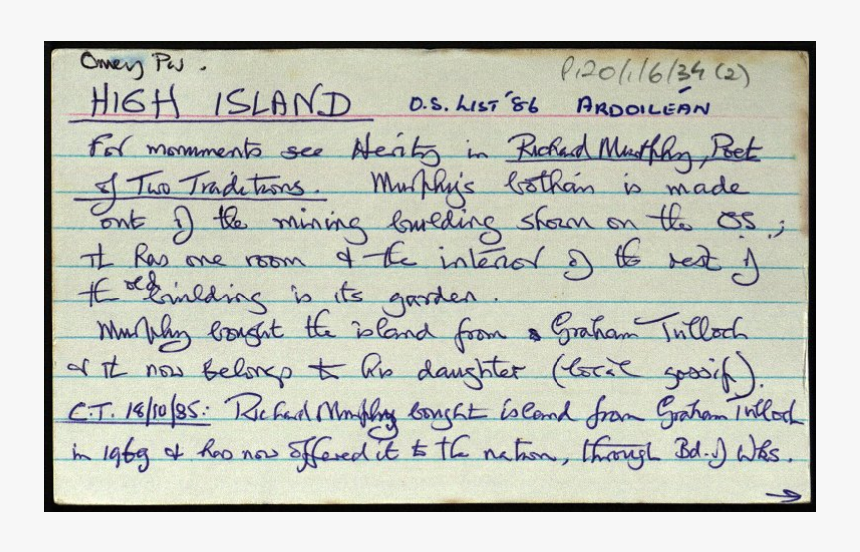 Omey Ph. P120/1/6/34 (2)
HIGH ISLAND O.S. LIST '86 ARDOILEÁN
For monuments see Herity in Richard Murphy, Poet
of Two Traditions. Murphy's bothán is made
out of the mining building shown on the OS;
it has one room & the interior of the rest of
the old building is its garden.
Murphy bought the island from Graham Tulloch
& it now belongs to his daughter (local gossip).
C.T. 18/10/85: Richard Murphy bought island from Graham Tulloch
in 1969 & has now offered it to the nation, through Bd. of Wks.
→